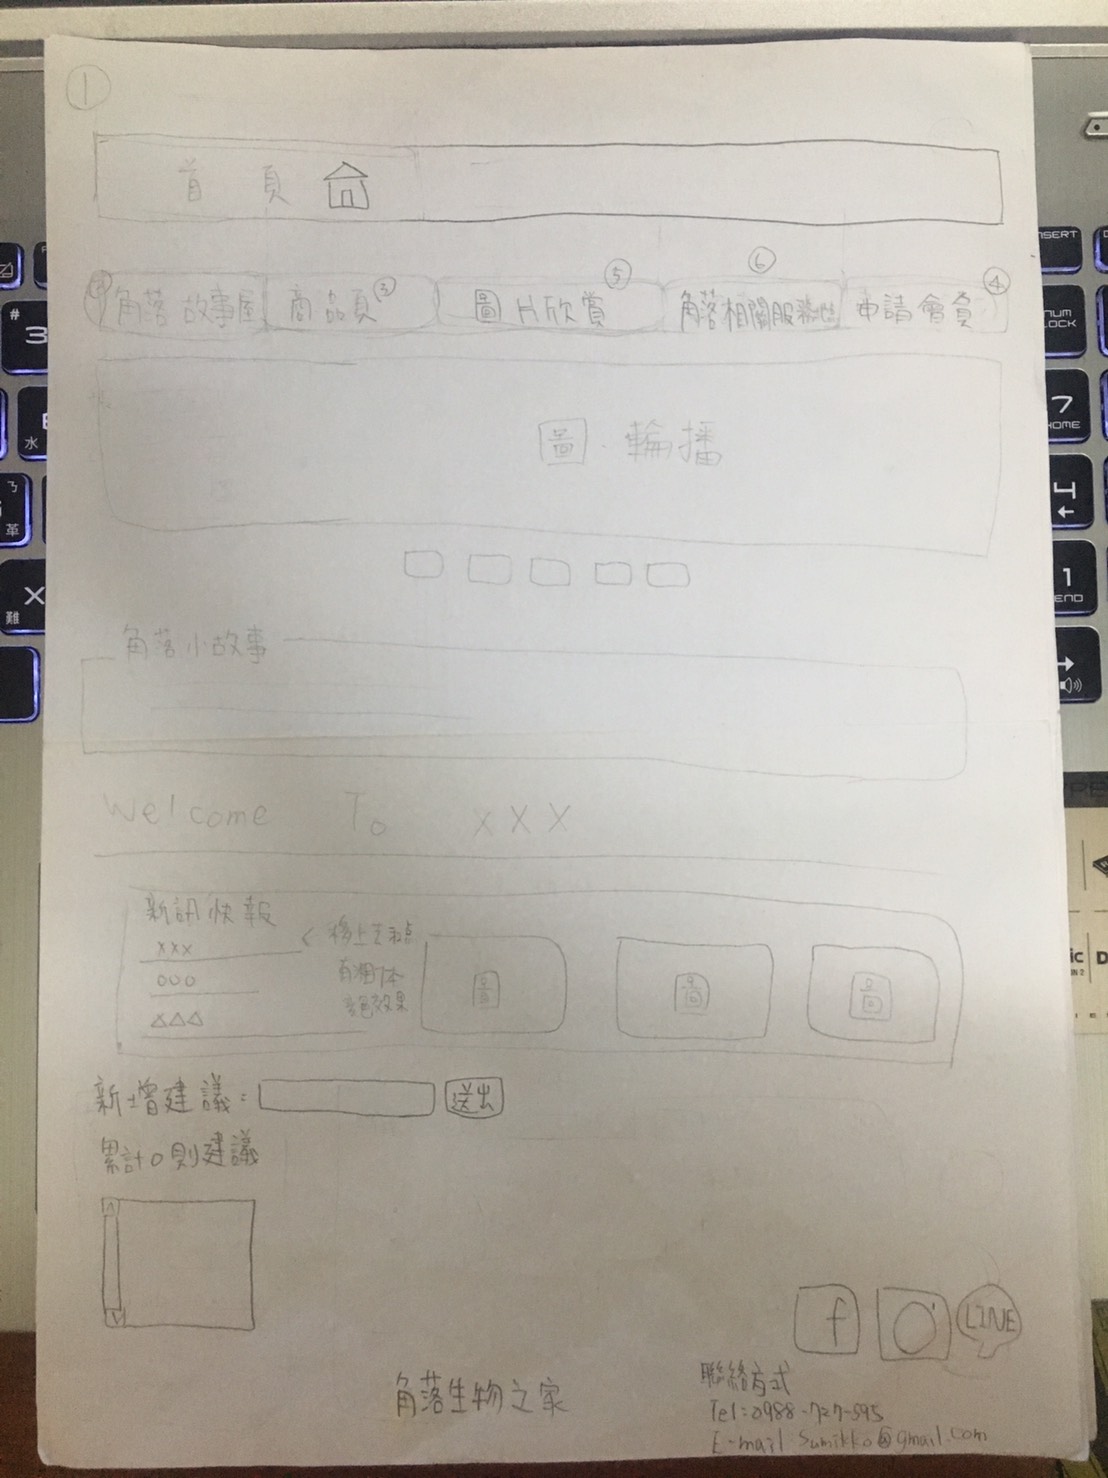 ①
首頁
② ③ ⑤ ⑥ ④
角落故事屋 商品頁 圖片欣賞 角落相關服務 申請會員
圖.輪播
角落小故事
Welcome To XXX
新訊快報
xxx
ooo
△△△
< 移上去
效果
圖 圖 圖
新增建議: 送出
累計0則建議
f LINE
角落生物之家
聯絡方式
Tel:0988-727-595
E-mail Sumikko@gmail.com
# 3
水
ㄋ
革
X
難
INSERT
NUM LOCK
7
HOME
4
←
1
END
→